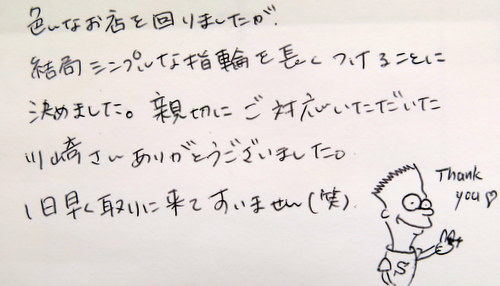 色んなお店を回りましたが、
結局シンプルな指輪を長くつけることに
決めました。親切にご対応いただいた
川崎さんありがとうございました。
1日早く取りに来てすいません(笑)
Thank
you♡
S